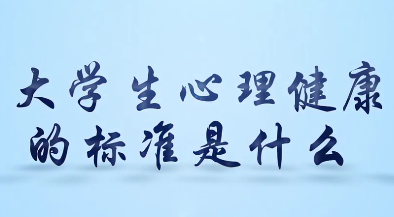 大学生心理健康
的标准是什么